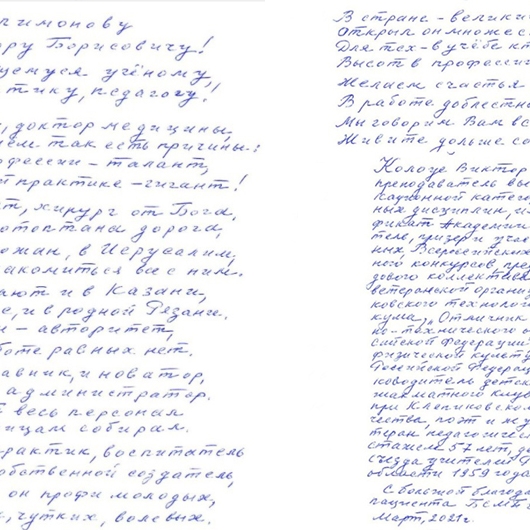 имонову
ору Борисовичу!
щемуся учёному,
тику, педагогу!
, доктор медицины,
ем так есть причины:
офессии – талант,
й практике – гигант!
т, хирург от Бога,
отоптана дорога,
рожан, в Иерусалим,
накомиться все с ним.
ают и в Казани,
е, и в родной Рязани.
и – авторитет,
боте равных нет.
авник, и новатор,
администратор.
весь персонал
ицам собирал.
рактик, воспитатель
обственной создатель,
он профи молодых,
, чутких, волевых.
В стране – велики
Открыл он множес
Для тех – в учёбе кт
Высот в професси
Желаем счастья
В работе доблестн
Мы говорим Вам вс
Живите дольше со
Колоце Виктор
преподаватель выс
кационной катего
ных дисциплин,
фикат Академии
тель, призер и учас
ных Всероссийских
ного конкурсов пре
дового коллектива
ветеранской органи
ковского технологи
кума, „Отличник
но-технического о
сийской Федерации"
физической культу
Российской Федерац
ководитель детск
шахматного клуб
при Клепиковском
чества, поэт и жу
теран педагогичес
стажем 57 лет, де
съезда учителей Р
области 1959 года
С большой благод
пациента БСМП
Март, 2021г.